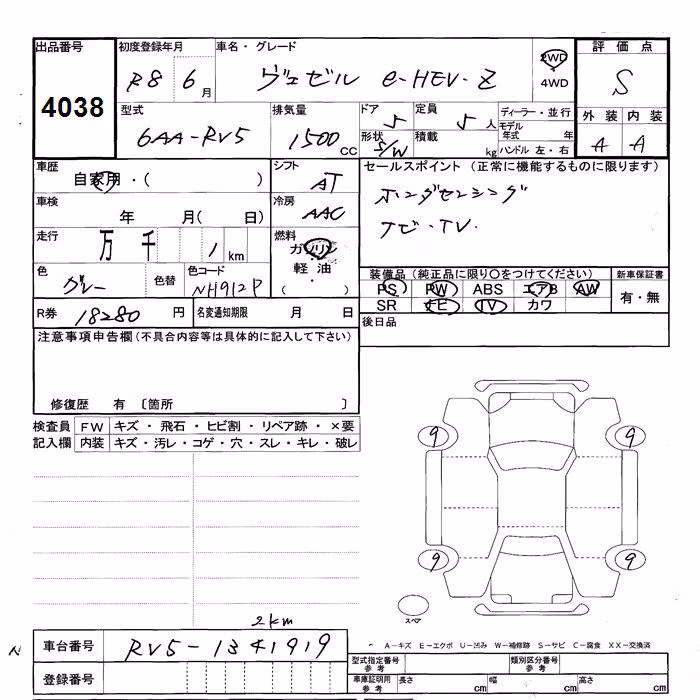 出品番号
4038
初度登録年月
R8 6月
車名・グレード
ヴェゼル e-HEV-Z
2WD
4WD
評価点
S
外装 内装
A A
型式
6AA-RV5
排気量
1500 CC
ドア
5
定員
5 人
形状
S/W
積載
kg
ディーラー・並行
モデル年式 年
ハンドル 左・右
車歴
自家用・( )
シフト
AT
車検
年 月( 日)
冷房
AAC
走行
万 千 1 km
燃料
ガソリン
軽油
( )
色
グレー
色替
色コード
NH912P
セールスポイント (正常に機能するものに限ります)
ホンダセンシング
ナビ・TV.
装備品 (純正品に限り〇をつけてください)
PS PW ABS エアB AW
SR ナビ TV カワ
新車保証書
有・無
後日品
R券 18280 円
名変通知期限 月 日
注意事項申告欄 (不具合内容等は具体的に記入して下さい)
修復歴 有 〔箇所 〕
検査員記入欄
FW キズ・飛石・ヒビ割・リペア跡・×要
内装 キズ・汚レ・コゲ・穴・スレ・キレ・破レ
9 9
9 9
スペア
2km
車台番号 RV5-1341919
登録番号
A-キズ E-エクボ U-凹み W-補修跡 S-サビ C-腐食 XX-交換済
型式指定番号 参考
類別区分番号 参考
車庫証明用 参考
長さ cm 幅 cm 高さ cm